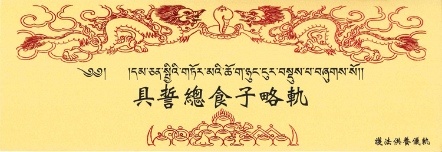 ༄༅། །དམ་ཅན་སྤྱིའི་གཏོར་མའི་ཆོ་ག་ཉུང་ངུར་བསྡུས་པ་བཞུགས་སོ། །
具誓總食子略軌
護法供養儀軌